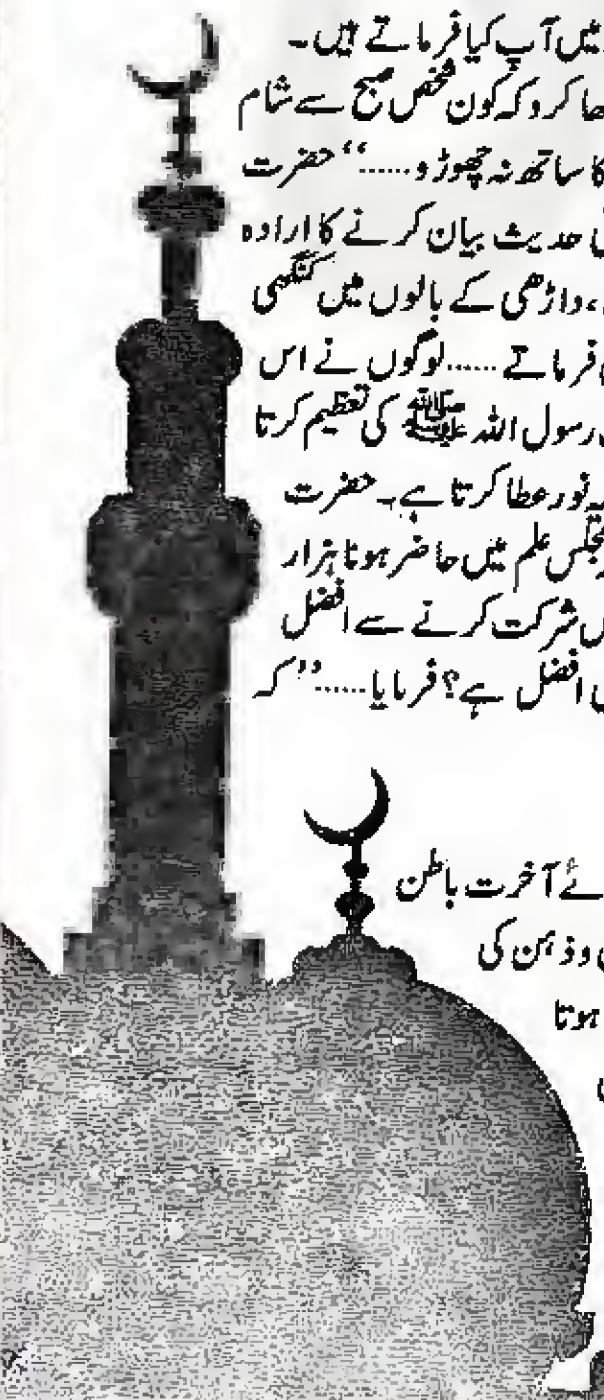 میں آپ کیا فرماتے ہیں۔
کرو کہ کون شخص صبح سے شام
کا ساتھ نہ چھوڑو......‘‘ حضرت
حدیث بیان کرنے کا ارادہ
، داڑھی کے بالوں میں کنگھی
فرماتے ...... لوگوں نے اس
رسول اللہ ﷺ کی تعظیم کرتا
نور عطا کرتا ہے۔ حضرت
مجلس علم میں حاضر ہونا ہزار
شرکت کرنے سے افضل
افضل ہے؟ فرمایا......’’ کہ
آخرت باطن
وذہن کی
ہوتا